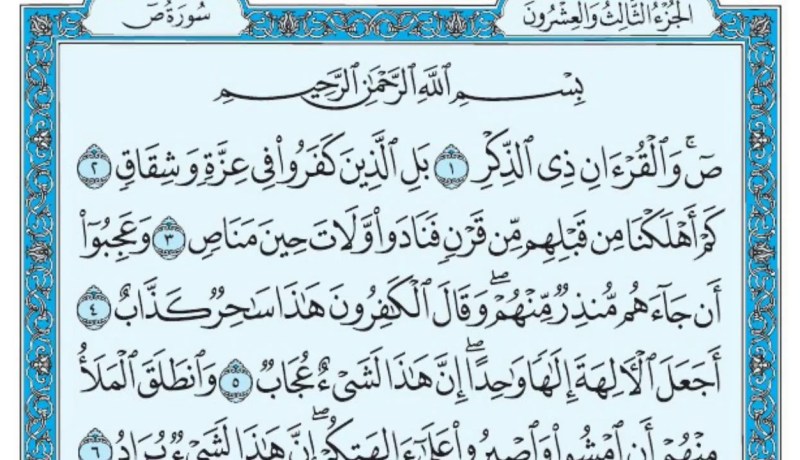 الجُزْءُ الثَّالِثُ وَالعِشْرُونَ
سُورَةُ صٓ
بِسْمِ اللَّهِ الرَّحْمَٰنِ الرَّحِيمِ
صٓ ۚ وَالْقُرْءَانِ ذِى الذِّكْرِ ١ بَلِ الَّذِينَ كَفَرُوا۟ فِى عِزَّةٍ وَشِقَاقٍ ٢
كَمْ أَهْلَكْنَا مِن قَبْلِهِم مِّن قَرْنٍ فَنَادَوا۟ وَّلَاتَ حِينَ مَنَاصٍ ٣ وَعَجِبُوٓا۟
أَن جَآءَهُم مُّنذِرٌ مِّنْهُمْ ۖ وَقَالَ الْكَٰفِرُونَ هَٰذَا سَٰحِرٌ كَذَّابٌ ٤
أَجَعَلَ الْأَلِهَةَ إِلَٰهًا وَٰحِدًا ۖ إِنَّ هَٰذَا لَشَىْءٌ عُجَابٌ ٥ وَانطَلَقَ الْمَلَأُ
مِنْهُمْ أَنِ امْشُوا۟ وَاصْبِرُوا۟ عَلَىٰٓ ءَالِهَتِكُمْ ۖ إِنَّ هَٰذَا لَشَىْءٌ يُرَادُ ٦